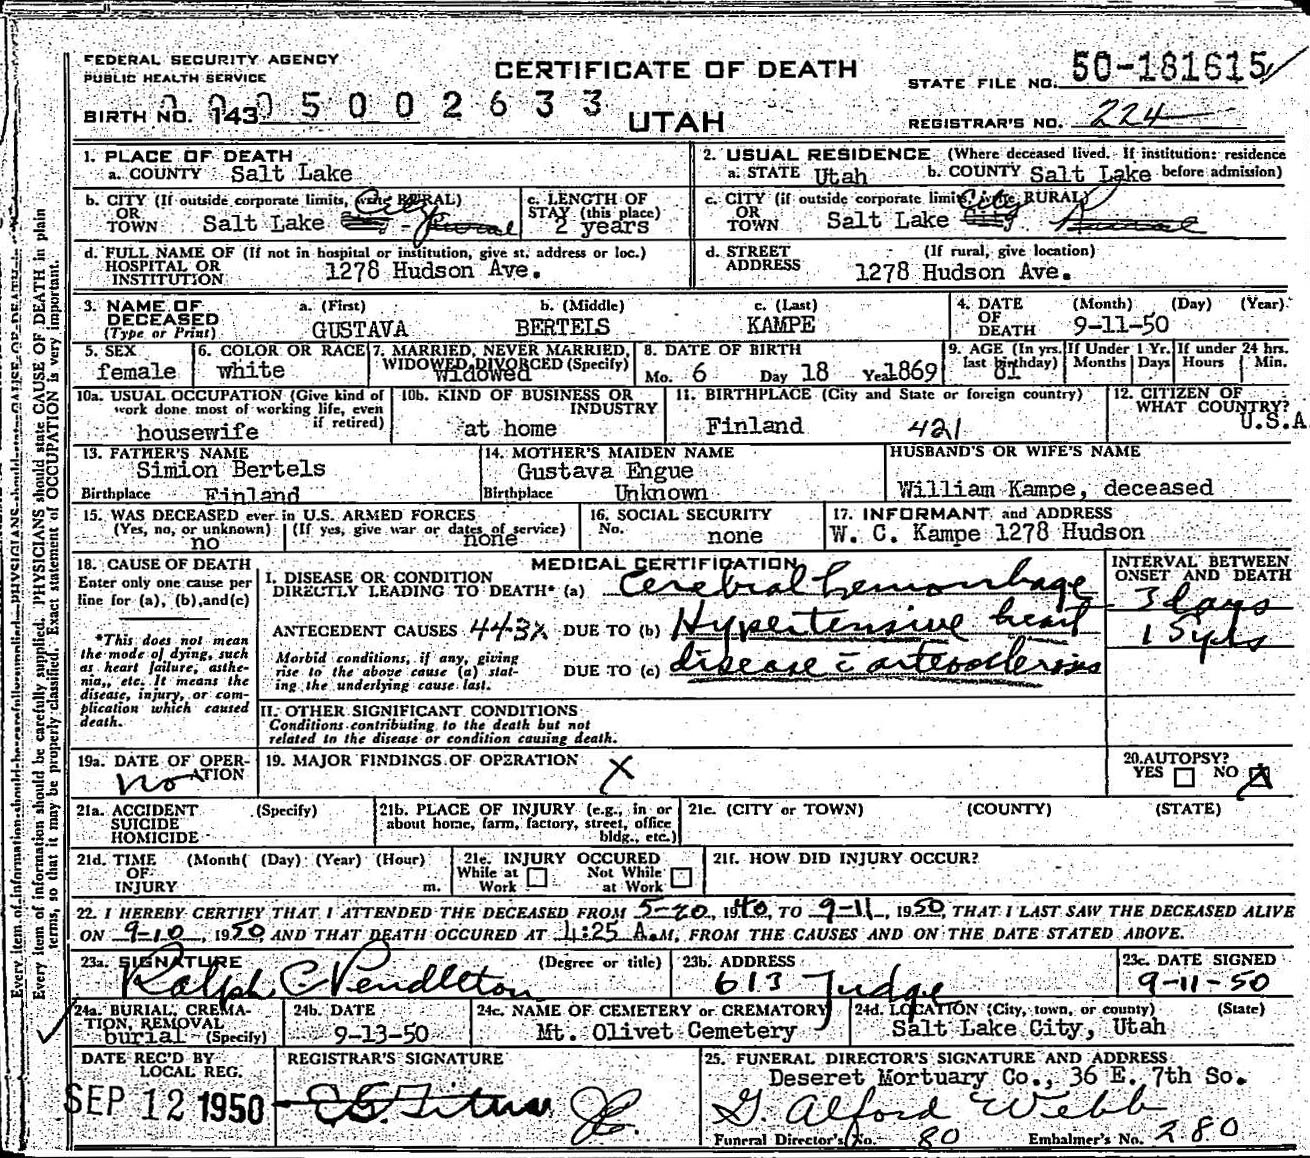 FEDERAL SECURITY AGENCY
PUBLIC HEALTH SERVICE
CERTIFICATE OF DEATH
UTAH
STATE FILE NO. 50-181615
BIRTH NO. 143
0005002633
REGISTRAR'S NO. 224
1. PLACE OF DEATH
a. COUNTY Salt Lake
2. USUAL RESIDENCE (Where deceased lived. If institution: residence before admission)
a. STATE Utah b. COUNTY Salt Lake
b. CITY (If outside corporate limits, write RURAL) OR TOWN Salt Lake City
c. LENGTH OF STAY (this place) 2 years
c. CITY (if outside corporate limits, write RURAL) OR TOWN Salt Lake City
d. FULL NAME OF (If not in hospital or institution, give st. address or loc.)
HOSPITAL OR INSTITUTION 1278 Hudson Ave.
d. STREET ADDRESS (If rural, give location)
1278 Hudson Ave.
3. NAME OF DECEASED (Type or Print)
a. (First) GUSTAVA b. (Middle) BERTELS c. (Last) KAMPE
4. DATE OF DEATH (Month) (Day) (Year) 9-11-50
5. SEX female
6. COLOR OR RACE white
7. MARRIED, NEVER MARRIED, WIDOWED, DIVORCED (Specify) widowed
8. DATE OF BIRTH Mo. 6 Day 18 Year 1869
9. AGE (In yrs. last birthday) 81
If Under 1 Yr. Months Days
If under 24 hrs. Hours Min.
10a. USUAL OCCUPATION (Give kind of work done most of working life, even if retired) housewife
10b. KIND OF BUSINESS OR INDUSTRY at home
11. BIRTHPLACE (City and State or foreign country) Finland 421
12. CITIZEN OF WHAT COUNTRY? U.S.A
13. FATHER'S NAME Simion Bertels
Birthplace Finland
14. MOTHER'S MAIDEN NAME Gustava Engue
Birthplace Unknown
HUSBAND'S OR WIFE'S NAME
William Kampe, deceased
15. WAS DECEASED ever in U.S. ARMED FORCES
(Yes, no, or unknown) no
(If yes, give war or dates of service) none
16. SOCIAL SECURITY No. none
17. INFORMANT and ADDRESS
W. C. Kampe 1278 Hudson
18. CAUSE OF DEATH
Enter only one cause per line for (a), (b), and (c)
*This does not mean the mode of dying, such as heart failure, asthenia,, etc. It means the disease, injury, or complication which caused death.
MEDICAL CERTIFICATION
INTERVAL BETWEEN ONSET AND DEATH
I. DISEASE OR CONDITION DIRECTLY LEADING TO DEATH* (a) Cerebral hemorrhage
3 days
ANTECEDENT CAUSES 443X DUE TO (b) Hypertensive heart
15 yrs
Morbid conditions, if any, giving rise to the above cause (a) stating the underlying cause last.
DUE TO (c) disease c̄ arteriosclerosis
II. OTHER SIGNIFICANT CONDITIONS
Conditions contributing to the death but not related to the disease or condition causing death.
19a. DATE OF OPERATION no
19. MAJOR FINDINGS OF OPERATION X
20. AUTOPSY? YES NO X
21a. ACCIDENT SUICIDE HOMICIDE (Specify)
21b. PLACE OF INJURY (e.g., in or about home, farm, factory, street, office bldg., etc.)
21c. (CITY or TOWN) (COUNTY) (STATE)
21d. TIME OF INJURY (Month( (Day) (Year) (Hour) m.
21e. INJURY OCCURED
While at Work Not While at Work
21f. HOW DID INJURY OCCUR?
22. I HEREBY CERTIFY THAT I ATTENDED THE DECEASED FROM 5-20, 1940, TO 9-11, 1950, THAT I LAST SAW THE DECEASED ALIVE
ON 9-10, 1950, AND THAT DEATH OCCURED AT 4:25 A.M, FROM THE CAUSES AND ON THE DATE STATED ABOVE.
23a. SIGNATURE (Degree or title)
Ralph C Pendleton
23b. ADDRESS
613 Judge
23c. DATE SIGNED
9-11-50
24a. BURIAL, CREMATION, REMOVAL (Specify) burial
24b. DATE 9-13-50
24c. NAME OF CEMETERY or CREMATORY
Mt. Olivet Cemetery
24d. LOCATION (City, town, or county) (State)
Salt Lake City, Utah
DATE REC'D BY LOCAL REG.
SEP 12 1950
REGISTRAR'S SIGNATURE
25. FUNERAL DIRECTOR'S SIGNATURE AND ADDRESS
Deseret Mortuary Co., 36 E. 7th So.
G. Alford Webb
Funeral Director's No. 80 Embalmer's No. 280
Every item of information should be carefully supplied. PHYSICIANS should state CAUSE OF DEATH in plain
terms, so that it may be properly classified. Exact statement of OCCUPATION is very important.